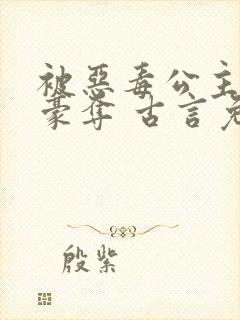 被恶毒公主
豪夺 古言
殷紫